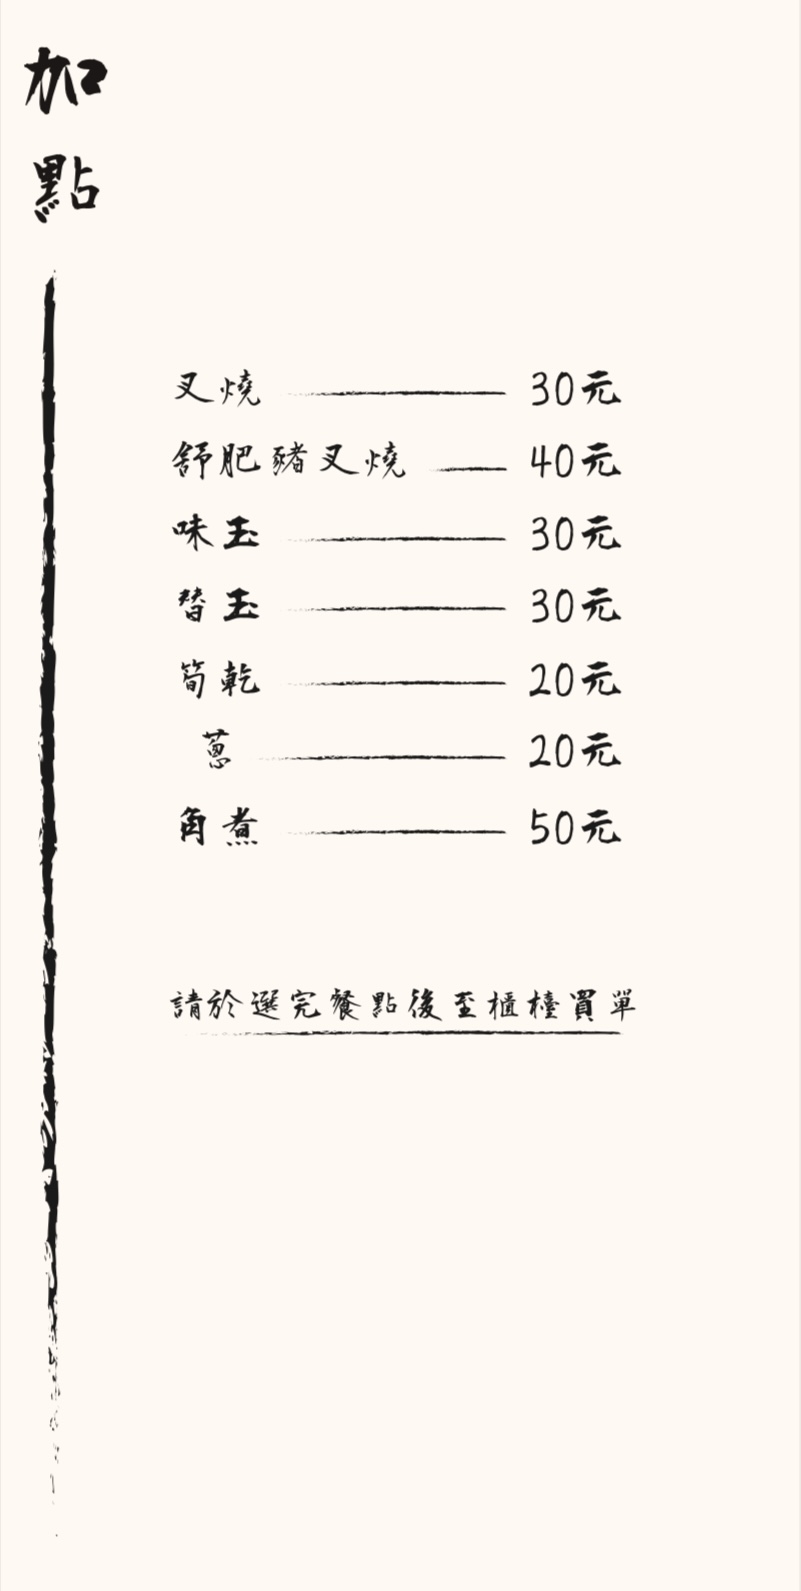 加點
叉燒 30元
舒肥豬叉燒 40元
味玉 30元
替玉 30元
筍乾 20元
蔥 20元
角煮 50元
請於選完餐點後至櫃檯買單